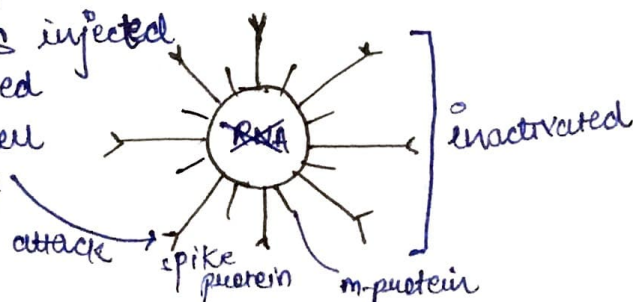 injected
ed
ell
RNA
inactivated
attack
spike
protein
m-protein